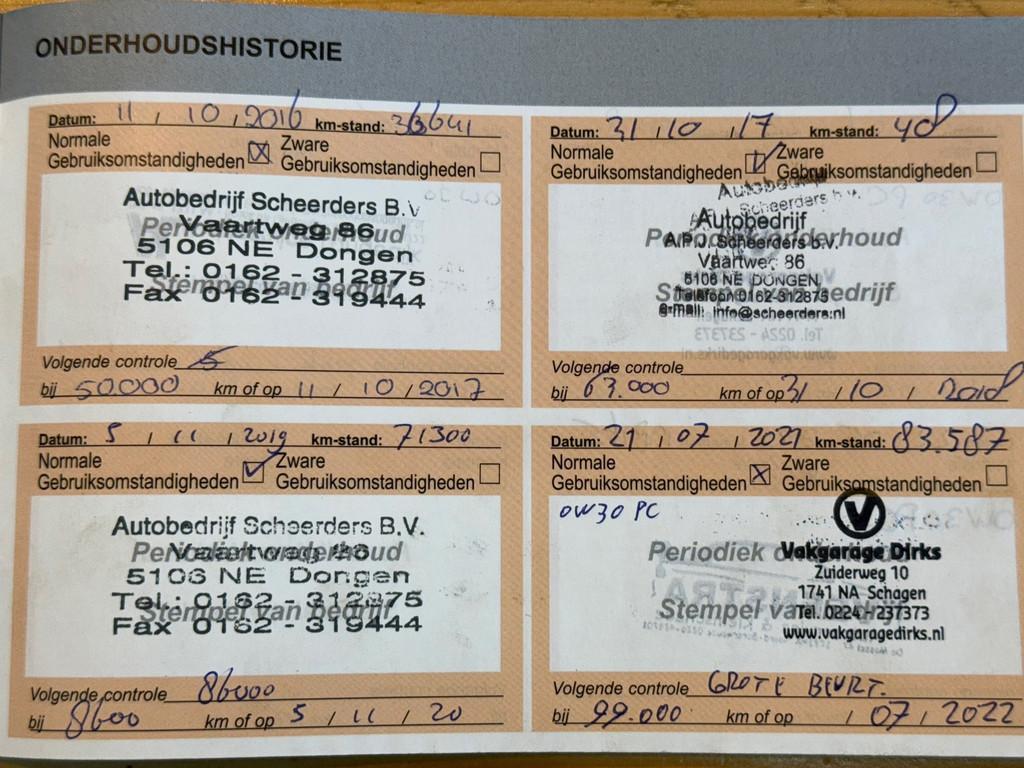 ONDERHOUDSHISTORIE
Datum: 11 / 10 / 2016 km-stand: 36641
Normale Gebruiksomstandigheden ☒ Zware Gebruiksomstandigheden ☐
Autobedrijf Scheerders B.V
Periodiek onderhoud
Vaartweg 86
5106 NE Dongen
Tel.: 0162 - 312875
Stempel van bedrijf
Fax 0162 - 319444
Volgende controle
bij 50.000 km of op 11 / 10 / 2017
Datum: 31 / 10 / 17 km-stand: 48
Normale Gebruiksomstandigheden ☑ Zware Gebruiksomstandigheden ☐
Autobedrijf
Scheerders b.v.
Autobedrijf
Periodiek onderhoud
A.P.J. Scheerders b.v.
Vaartweg 86
5106 NE DONGEN
Stempel van bedrijf
Telefoon 0162-312875
e-mail: info@scheerders.nl
Volgende controle
bij 63.000 km of op 31 / 10 / 2018
Datum: 5 / 11 / 2019 km-stand: 71300
Normale Gebruiksomstandigheden ☑ Zware Gebruiksomstandigheden ☐
Autobedrijf Scheerders B.V.
Periodiek onderhoud
Vaartweg 86
5106 NE Dongen
Tel.: 0162 - 312875
Stempel van bedrijf
Fax 0162 - 319444
Volgende controle 86000
bij 8600 km of op 5 / 11 / 20
Datum: 21 / 07 / 2021 km-stand: 83.587
Normale Gebruiksomstandigheden ☒ Zware Gebruiksomstandigheden ☐
OW30 PC
Periodiek onderhoud
Vakgarage Dirks
Zuiderweg 10
1741 NA Schagen
Stempel van bedrijf
Tel. 0224 - 237373
www.vakgaragedirks.nl
Volgende controle GROTE BEURT.
bij 99.000 km of op / 07 / 2022